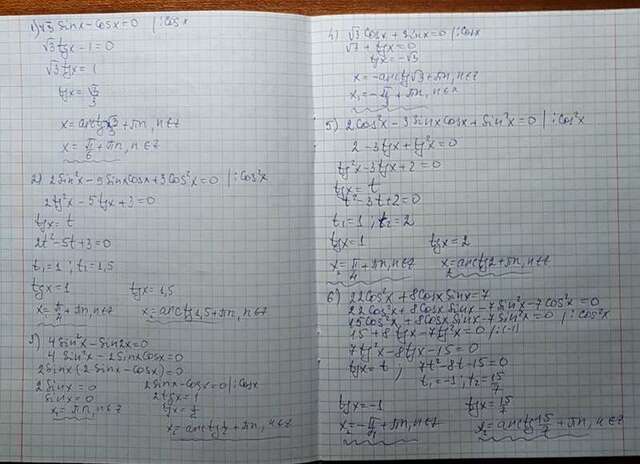 1) √3 sinx - cosx = 0 | : cosx
√3 tgx - 1 = 0
√3 tgx = 1
tgx = √3/3
x = arctg √3/3 + πn, n∈Z
x = π/6 + πn, n∈Z
2) 2sin²x - 5sinxcosx + 3cos²x = 0 | : cos²x
2tg²x - 5tgx + 3 = 0
tgx = t
2t² - 5t + 3 = 0
t₁ = 1 ; t₂ = 1,5
tgx = 1 tgx = 1,5
x = π/4 + πn, n∈Z x = arctg1,5 + πn, n∈Z
3) 4sin²x - sin2x = 0
4sin²x - 2sinxcosx = 0
2sinx(2sinx - cosx) = 0
2sinx = 0 2sinx - cosx = 0 | : cosx
sinx = 0 2tgx = 1
x₁ = πn, n∈Z tgx = 1/2
x₂ = arctg 1/2 + πn, n∈Z
4) √3 cosx + sinx = 0 | : cosx
√3 + tgx = 0
tgx = -√3
x = -arctg√3 + πn, n∈Z
x₁ = -π/3 + πn, n∈Z
5) 2cos²x - 3sinxcosx + sin²x = 0 | : cos²x
2 - 3tgx + tg²x = 0
tg²x - 3tgx + 2 = 0
tgx = t
t² - 3t + 2 = 0
t₁ = 1 ; t₂ = 2
tgx = 1 tgx = 2
x = π/4 + πn, n∈Z x = arctg2 + πn, n∈Z
6) 22cos²x + 8cosxsinx = 7
22cos²x + 8cosxsinx - 7sin²x - 7cos²x = 0
15cos²x + 8cosxsinx - 7sin²x = 0 | : cos²x
15 + 8tgx - 7tg²x = 0 | : (-1)
7tg²x - 8tgx - 15 = 0
tgx = t ; 7t² - 8t - 15 = 0
t₁ = -1 ; t₂ = 15/7
tgx = -1 tgx = 15/7
x = -π/4 + πn, n∈Z x₂ = arctg 15/7 + πn, n∈Z